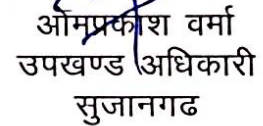 ओमप्रकाश वर्मा
उपखण्ड अधिकारी
सुजानगढ